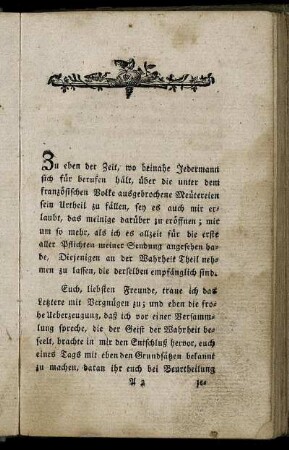 Zu eben der Zeit, wo beinahe Jedermann
sich für berufen hält, über die unter dem
französischen Volke ausgebrochene Meütereien
sein Urtheil zu fällen, sey es auch mir er-
laubt, das meinige darüber zu eröffnen; mir
um so mehr, als ich es allzeit für die erste
aller Pflichten meiner Sendung angesehen ha-
be, Diejenigen an der Wahrheit Theil neh-
men zu lassen, die derselben empfänglich sind.
Euch, liebsten Freunde, traue ich das
Letztere mit Vergnügen zu; und eben die fro-
he Ueberzeugung, daß ich vor einer Versamm-
lung spreche, die der Geist der Wahrheit be-
seelt, brachte in mir den Entschluß hervor, euch
eines Tags mit eben den Grundsätzen bekannt
zu machen, daran ihr euch bei Beurtheilung
A 2 je-